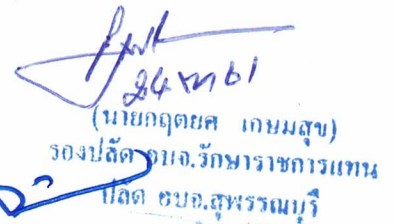 24 ตค 61
(นายกฤตยศ เกษมสุข)
รองปลัด อบจ.รักษาราชการแทน
ปลัด อบจ.สุพรรณบุรี